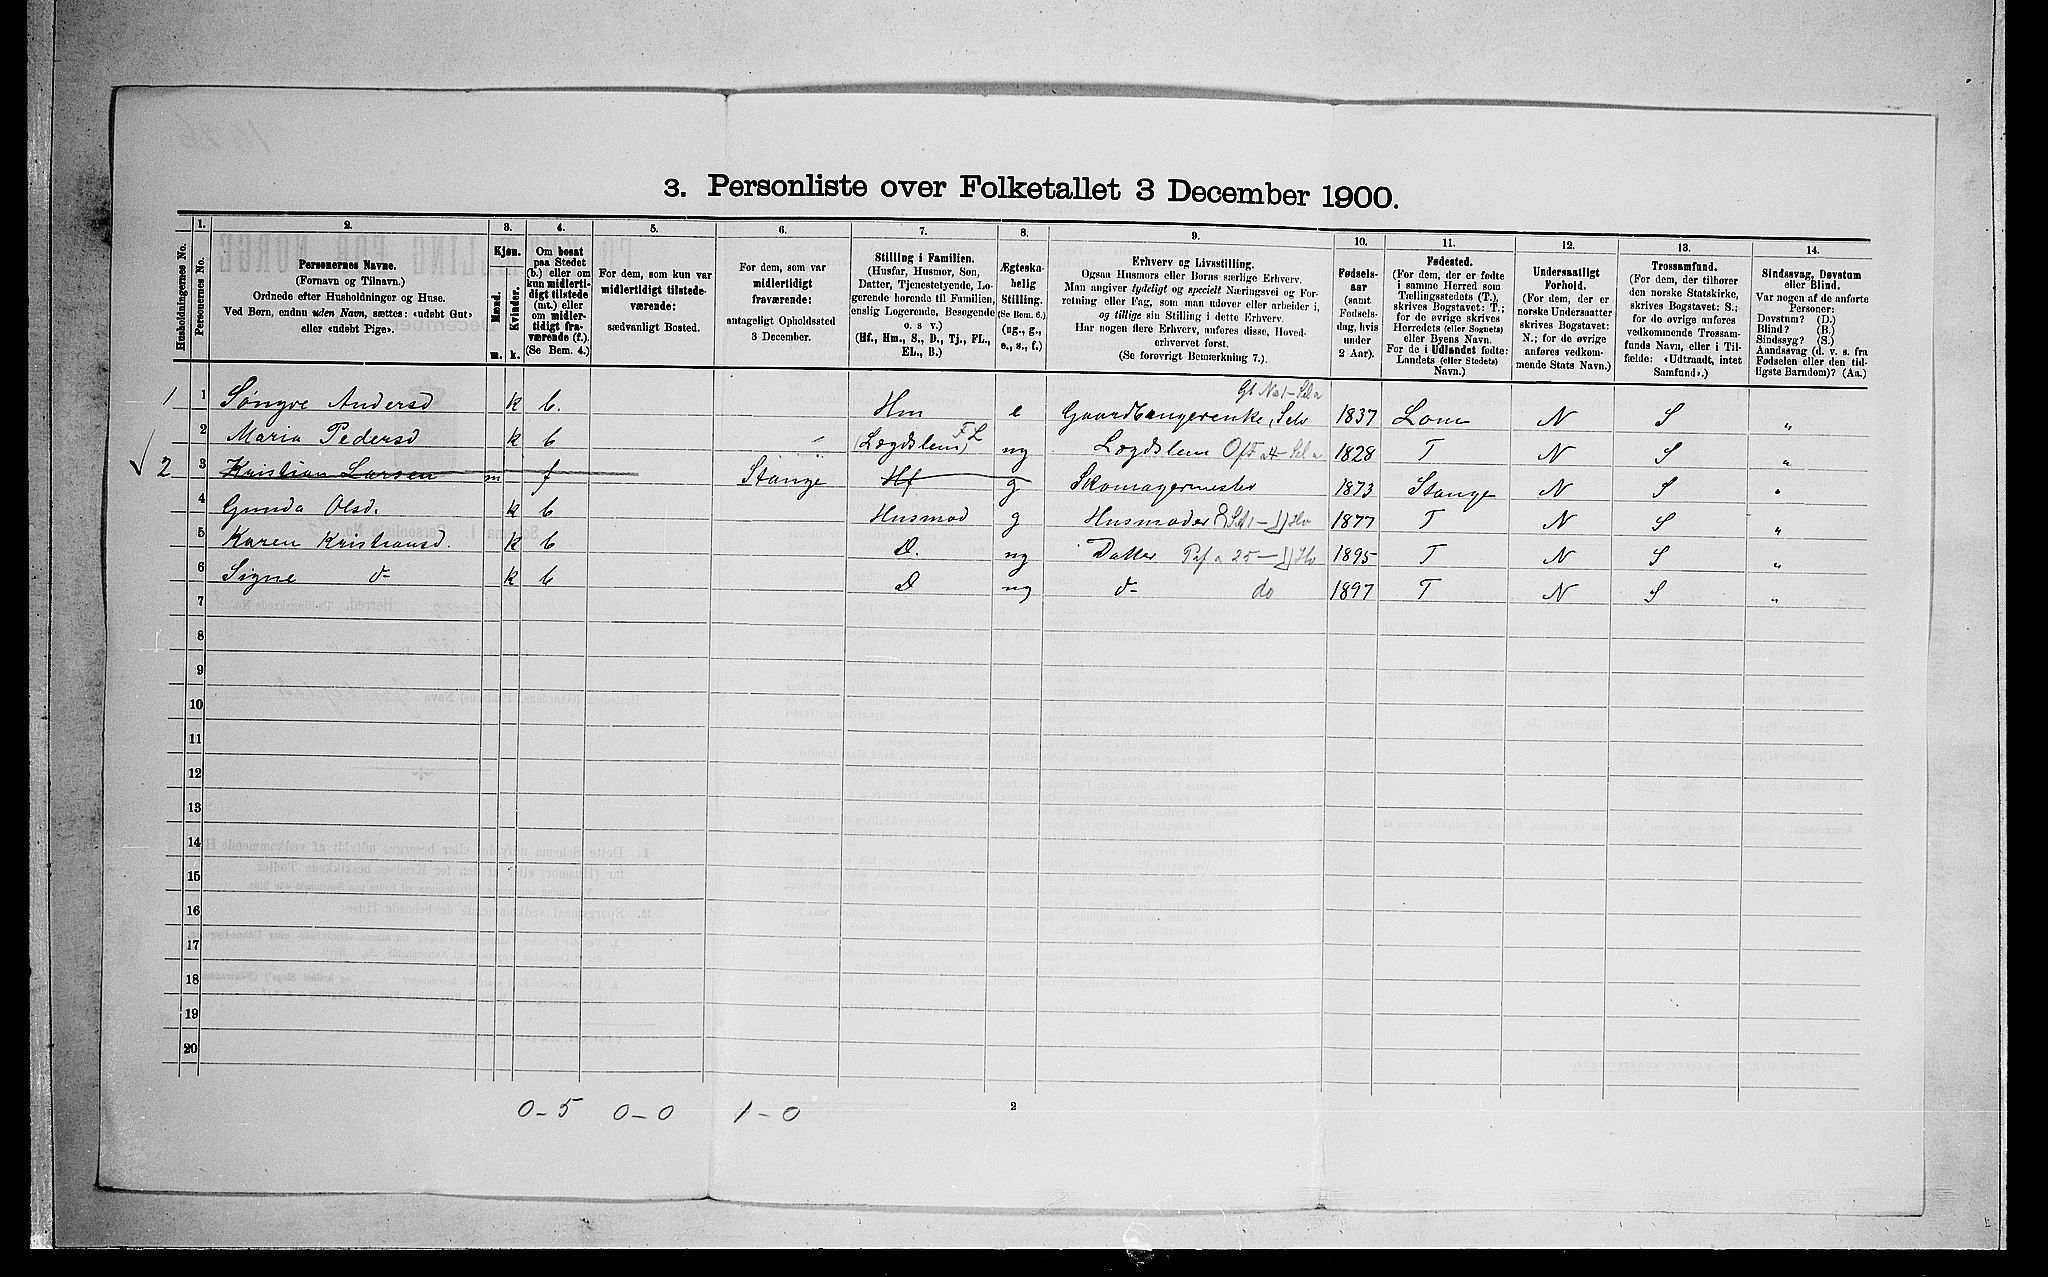 3. Personliste over Folketallet 3 December 1900.
1. 2. 3. 4. 5. 6. 7. 8. 9. 10. 11. 12. 13. 14.
Husholdningernes No.
Personernes No.
Personernes Navne.
(Fornavn og Tilnavn.)
Ordnede efter Husholdninger og Huse.
Ved Børn, endnu uden Navn, sættes: «udøbt Gut»
eller «udøbt Pige».
Kjøn.
Mænd.
Kvinder.
m. k.
Om bosat
paa Stedet
(b.) eller om
kun midlerti-
digt tilstede
(mt.) eller
om midler-
tidigt fra-
værende (f.).
(Se Bem. 4.)
For dem, som kun var
midlertidigt tilstede-
værende:
sædvanligt Bosted.
For dem, som var
midlertidigt
fraværende:
antageligt Opholdssted
3 December.
Stilling i Familien.
(Husfar, Husmor, Søn,
Datter, Tjenestetyende, Lo-
gerende hørende til Familien,
enslig Logerende, Besøgende
o. s. v.)
(Hf., Hm., S., D., Tj., FL.,
EL., B.)
Ægteska-
belig
Stilling.
(Se Bem. 6.)
(ug., g.,
e., s., f.)
Erhverv og Livsstilling.
Ogsaa Husmors eller Børns særlige Erhverv.
Man angiver tydeligt og specielt Næringsvei og For-
retning eller Fag, som man udøver eller arbeider i,
og tillige sin Stilling i dette Erhverv.
Har nogen flere Erhverv, anføres disse, Hoved-
erhvervet først.
(Se forøvrigt Bemerkning 7.)
Fødsels-
aar
(samt
Fødsels-
dag, hvis
under
2 Aar).
Fødested.
(For dem, der er fødte
i samme Herred som
Tællingsstedets (T.),
skrives Bogstavet: T.;
for de øvrige skrives
Herredets (eller Sognets)
eller Byens Navn.
For de i Udlandet fødte:
Landets (eller Stedets)
Navn.)
Undersaatligt
Forhold.
(For dem, der er
norske Undersaatter
skrives Bogstavet:
N.; for de øvrige
anføres vedkom-
mende Stats Navn.)
Trossamfund.
(For dem, der tilhører
den norske Statskirke,
skrives Bogstavet: S.;
for de øvrige anføres
vedkommende Trossam-
funds Navn, eller i Til-
fælde: «Udtraadt, intet
Samfund».)
Sindssvag, Døvstum
eller Blind.
Var nogen af de anførte
Personer:
Døvstum? (D.)
Blind? (B.)
Sindssyg? (S.)
Aandssvag (d. v. s. fra
Fødselen eller den tid-
ligste Barndom)? (Aa.)
1 1 Søngve Andersd k b. Hm e Gaardbrugerenke, Selv 1837 Lom N S "
2 Maria Pedersd k b (Lægdslem) FL ug Lægdslem 1828 T N S "
2 3 Kristian Larsen m f Stange Hf g Skomagermester 1873 Stange N S "
4 Gunda Olsd. k b Husmod g Husmoder 1877 T N S "
5 Karen Kristiansd. k b D. ug Datter 1895 T N S "
6 Signe d- k b D ug d- do 1897 T N S "
7
8
9
10
11
12
13
14
15
16
17
18
19
20
0-5 0-0 1-0
2